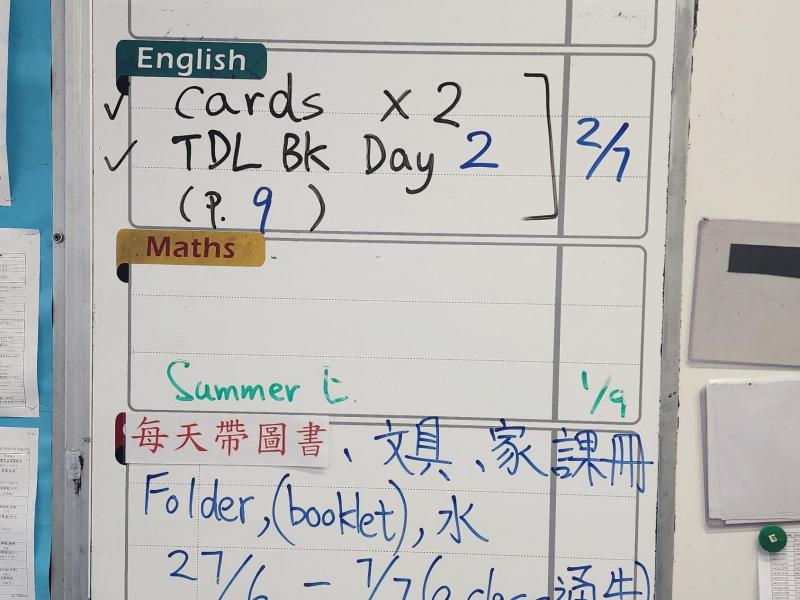 English
✓ cards x 2
✓ TDL Bk Day 2
(p. 9 )
2/7
Maths
Summer 1/9
每天帶圖書、文具、家課冊
Folder, (booklet), 水
27/6 - 7/7(